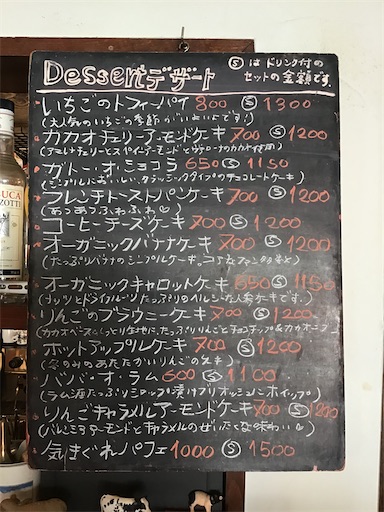 Dessert デザート
Ⓢ は ドリンク付の
セットの金額です。
いちごのトフィーパイ 800 Ⓢ 1300
(大人気のいちごの季節がはじまりです!)
カカオチェリーアーモンドケーキ 700 Ⓢ 1200
(アメリカチェリーとスペインアーモンドとヴァローナのカカオ使用)
ガトー・オ・ショコラ 650 Ⓢ 1150
(シンプルにおいしい、クラッシックタイプのチョコレートケーキ)
フレンチトーストパンケーキ 700 Ⓢ 1200
(あつあつふわふわ♡)
コーヒーチーズケーキ 700 Ⓢ 1200
オーガニックバナナケーキ 700 Ⓢ 1200
(たっぷりバナナのシンプルケーキ。
オーガニックキャロットケーキ 650 Ⓢ 1150
(ナッツとドライフルーツたっぷりのヘルシーな人参ケーキです。)
りんごのブラウニーケーキ 700 Ⓢ 1200
たっぷりりんごとチョコチップ&カカオニブ)
ホットアップルケーキ 700 Ⓢ 1200
(冬のみのあたたかいりんごのケーキ)
ババ・オ・ラム 600 Ⓢ 1100
(ラム酒たっぷりシロップ漬けブリオッシュにホイップ)
りんごキャラメルアーモンドケーキ 700 Ⓢ 1200
アーモンドとキャラメルのぜいたくな味わい♡)
気まぐれパフェ 1000 Ⓢ 1500